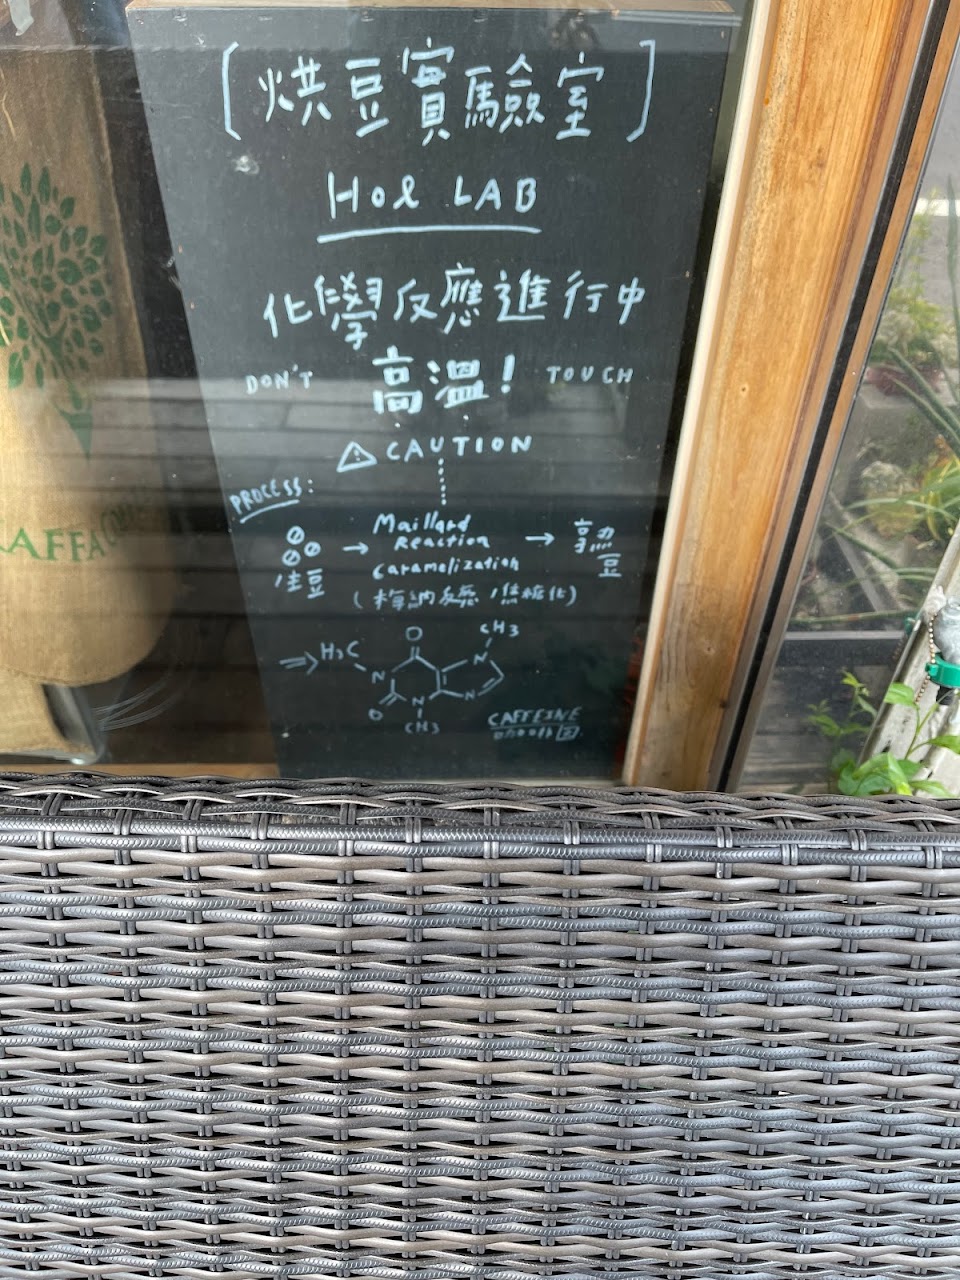 [烘豆實驗室]
Hol LAB
化學反應進行中
DON'T 高溫! TOUCH
⚠CAUTION
PROCESS:
生豆 → Maillard Reaction Caramelization → 熟豆
(梅納反應/焦糖化)
H₃C
O
CH3
N
N
N
N
O
CH3
CAFFEINE
KAFFA COFFEE